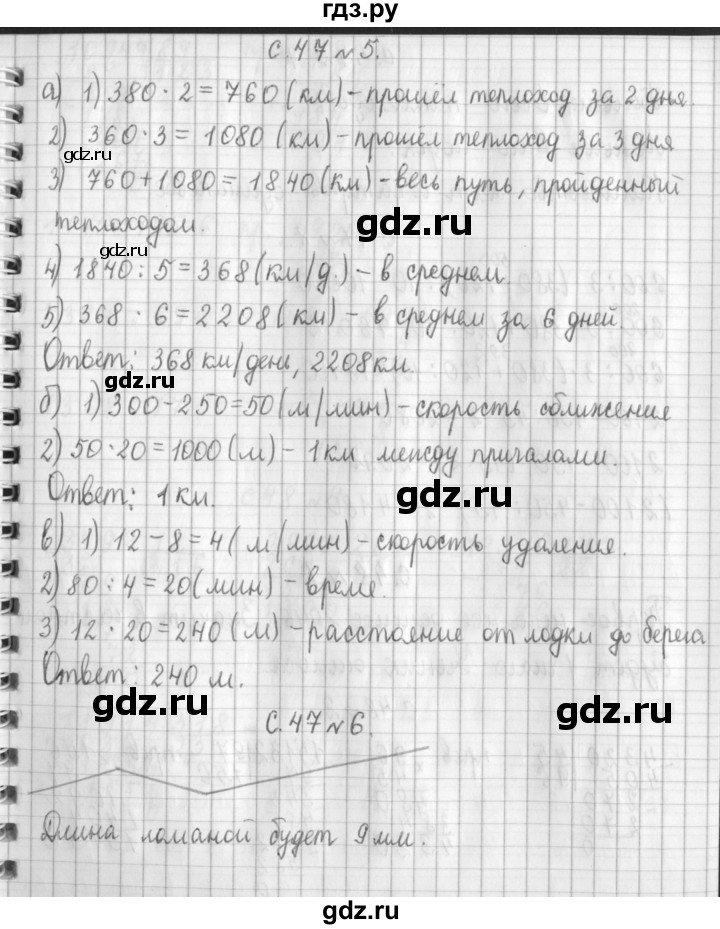 гдз.ру
с. 47 № 5.
а) 1) 380 · 2 = 760 (км) – прошёл теплоход за 2 дня.
2) 360 · 3 = 1080 (км) – прошёл теплоход за 3 дня
gdz.ru
3) 760 + 1080 = 1840 (км) – весь путь, пройденный
теплоходом.
gdz.ru
gdz.ru
4) 1840 : 5 = 368 (км/д.) – в среднем.
5) 368 · 6 = 2208 (км) – в среднем за 6 дней.
Ответ: 368 км/день, 2208 км.
gdz.ru
б) 1) 300 – 250 = 50 (м/мин) – скорость сближения
2) 50 · 20 = 1000 (м) – 1 км между причалами.
Ответ: 1 км.
gdz.ru
в) 1) 12 – 8 = 4 (м/мин) – скорость удаления.
2) 80 : 4 = 20 (мин) – време.
3) 12 · 20 = 240 (м) – расстояние от лодки до берега
Ответ: 240 м.
gdz.ru
gdz.ru
с. 47 № 6.
Длина ломаной будет 9 мм.
gdz.ru
gdz.ru